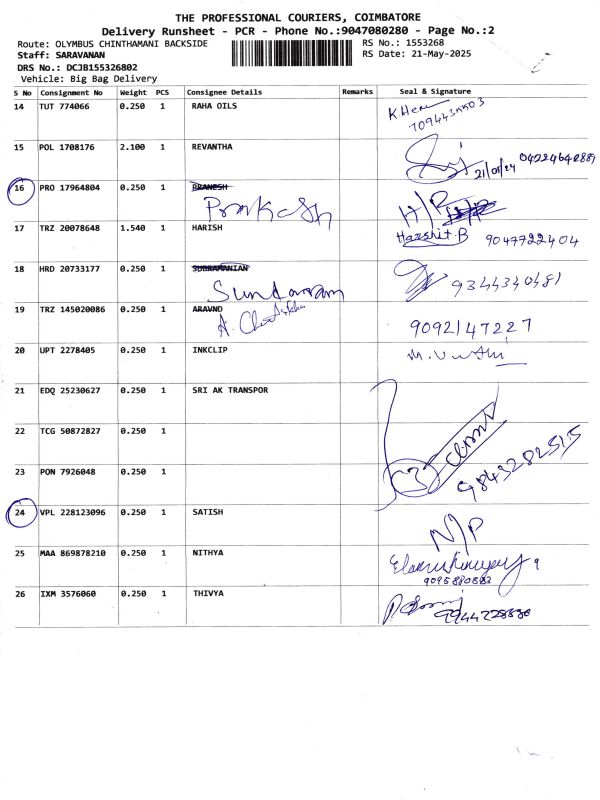 THE PROFESSIONAL COURIERS, COIMBATORE
Delivery Runsheet - PCR - Phone No.:9047080280 - Page No.:2
Route: OLYMBUS CHINTHAMANI BACKSIDE RS No.: 1553268
Staff: SARAVANAN RS Date: 21-May-2025
DRS No.: DCJB155326802
Vehicle: Big Bag Delivery
S No Consignment No Weight PCS Consignee Details Remarks Seal & Signature
14 TUT 774066 0.250 1 RAHA OILS
15 POL 1708176 2.100 1 REVANTHA
16 PRO 17964804 0.250 1 PRANESH
Prakash H/P
17 TRZ 20078648 1.540 1 HARISH
Harshit.B 9047722404
18 HRD 20733177 0.250 1 SUBRAMANIAN
Sundaram 9344340481
19 TRZ 145020086 0.250 1 ARAVND
9092147227
20 UPT 2278405 0.250 1 INKCLIP
21 EDQ 25230627 0.250 1 SRI AK TRANSPOR
22 TCG 50872827 0.250 1
3 client
9843282515
23 PON 7926048 0.250 1
24 VPL 228123096 0.250 1 SATISH
N/P
25 MAA 869878210 0.250 1 NITHYA
26 IXM 3576060 0.250 1 THIVYA